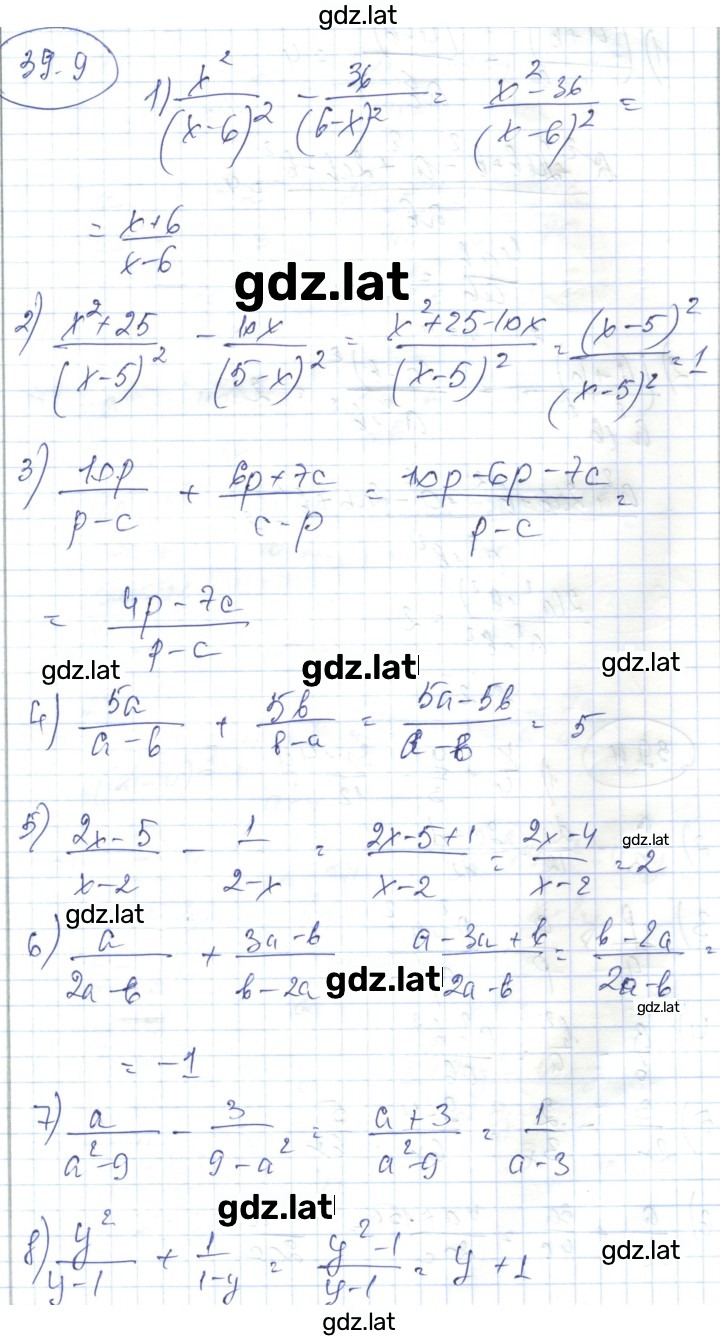 gdz.lat
39.9
1) x²/(x-6)² - 36/(6-x)² = x²-36/(x-6)² =
= x+6/x-6
gdz.lat
2) x²+25/(x-5)² - 10x/(5-x)² = x²+25-10x/(x-5)² = (x-5)²/(x-5)² = 1
3) 10p/p-c + 6p+7c/c-p = 10p-6p-7c/p-c =
= 4p-7c/p-c
gdz.lat gdz.lat gdz.lat
4) 5a/a-b + 5b/b-a = 5a-5b/a-b = 5
5) 2x-5/x-2 - 1/2-x = 2x-5+1/x-2 = 2x-4/x-2 = 2
gdz.lat
gdz.lat
6) a/2a-b + 3a-b/b-2a a-3a+b/2a-b = b-2a/2a-b =
gdz.lat
gdz.lat
= -1
7) a/a²-9 - 3/9-a² = a+3/a²-9 = 1/a-3
gdz.lat
8) y²/y-1 + 1/1-y = y²-1/y-1 = y+1
gdz.lat
gdz.lat